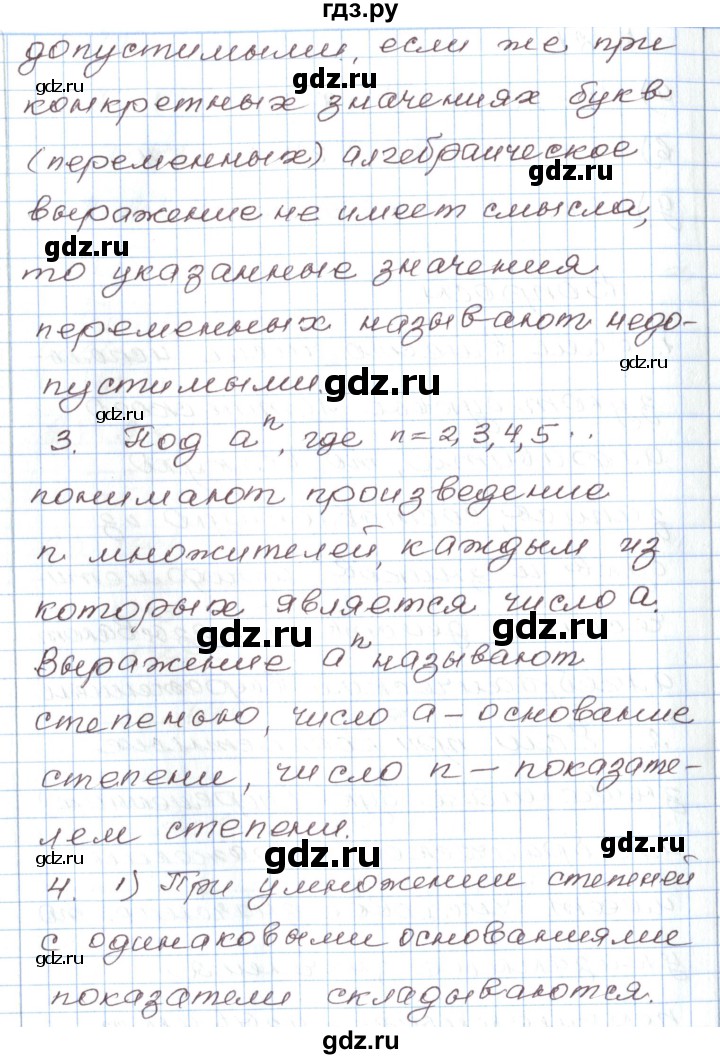 гдз.ру
допустимыми, если же при
gdz.ru gdz.ru
конкретных значениях букв
(переменных) алгебраическое
gdz.ru
выражение не имеет смысла,
gdz.ru
то указанные значения
переменных называют недо-
gdz.ru
пустимыми.
gdz.ru
gdz.ru
3. Под aⁿ, где n = 2, 3, 4, 5 ..
понимают произведение
n множителей, каждым из
которых является число a.
gdz.ru
Выражение aⁿ называют
степенью, число a – основание
степени, число n – показате-
лем степени.
gdz.ru gdz.ru gdz.ru
4. 1) При умножении степеней
с одинаковыми основаниями
gdz.ru
показатели складываются.
gdz.ru